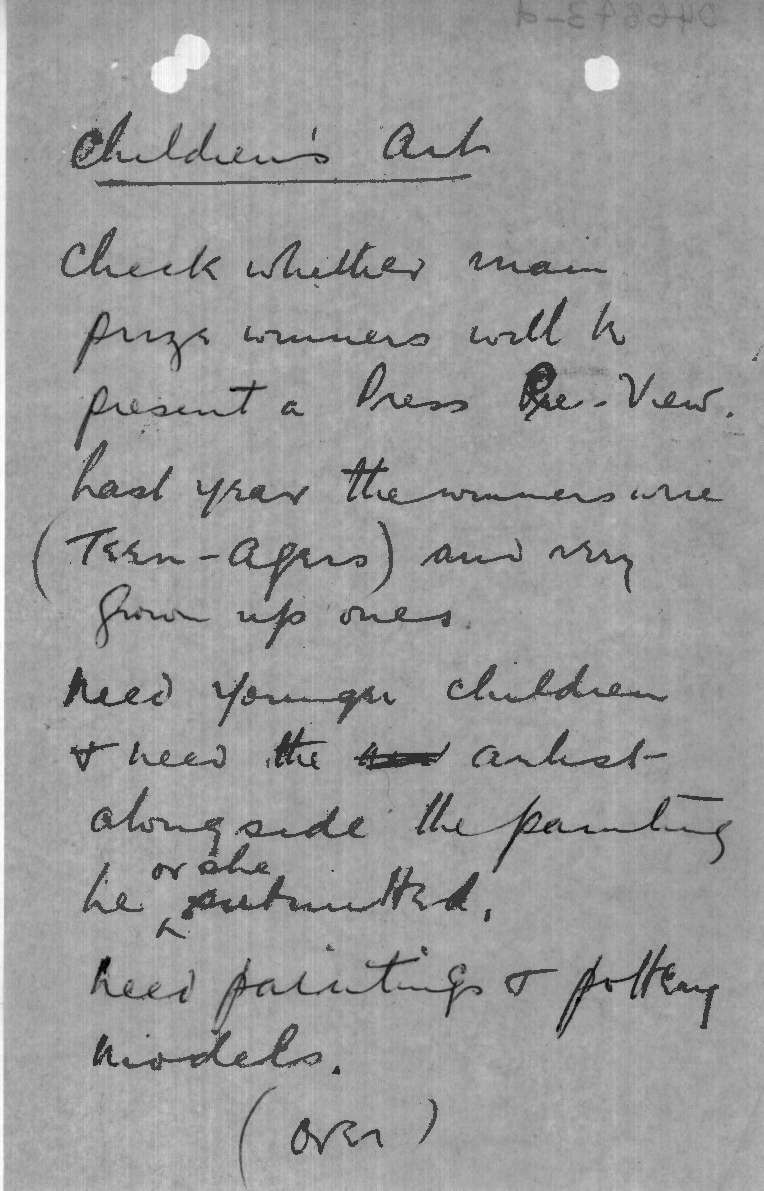 Children's Art
Check whether main
prize winners will be
present a Press Pre-View.
Last year the winners were
(Teen-Agers) and very
grown up ones.
Need younger children
& need the artist
alongside the painting
he or she submitted.
Need paintings & pottery
models.
(over)